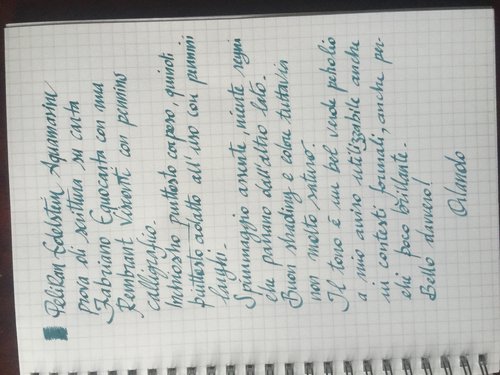 Pelikan Edelstein Aquamarine
prova di scrittura su carta
Fabriano Equocarta con una
Rembrant Visconti con pennino
calligrafico.
Inchiostro piuttosto corposo, quindi
piuttosto adatto all'uso con pennini
larghi.
Spiumaggio assente, niente segni
che passano dall'altro lato.
Buon shading e colore tuttavia
non molto saturo.
Il tono è un bel verde petrolio
a mio avviso utilizzabile anche
in contesti formali, anche per-
ché poco brillante.
Bello davvero!
Orlando